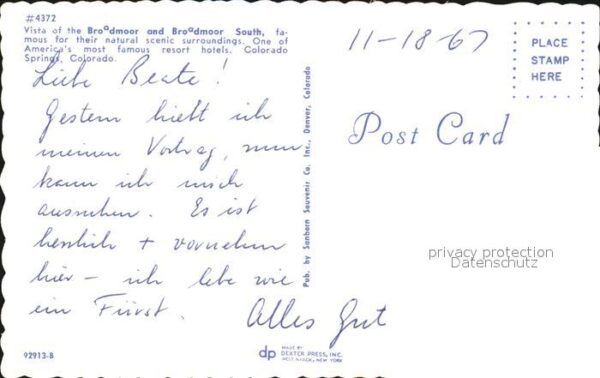 #4372
Vista of the Broadmoor and Broadmoor South, fa-
mous for their natural scenic surroundings. One of
America's most famous resort hotels. Colorado
Springs, Colorado.
11-18-67
PLACE
STAMP
HERE
Post Card
Liebe Beate!
Gestern hielt ich
meinen Vortrag, nun
kann ich mich
ausruhen. Es ist
herrlich + vornehm
hier – ich lebe wie
ein Fürst.
Alles Gut
Pub. by Sanborn Souvenir Co. Inc., Denver, Colorado
privacy protection
Datenschutz
92913-B
dp
MADE BY
DEXTER PRESS, INC.
WEST NYACK, NEW YORK